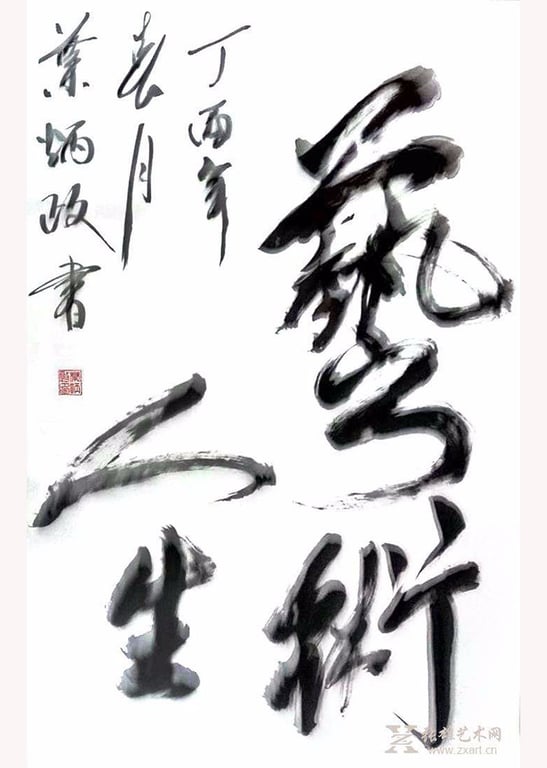 藝術
人生
丁酉年
春月
葉炳政書
张雄艺术网
www.zxart.cn